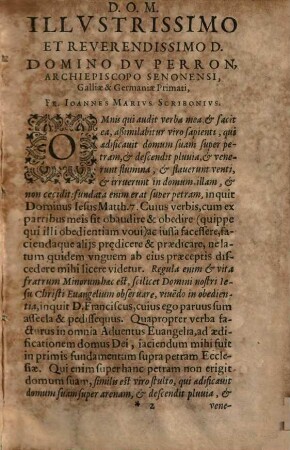 D. O. M.
ILLVSTRISSIMO
ET REVERENDISSIMO D.
DOMINO DV PERRON,
ARCHIEPISCOPO SENONENSI,
Galliæ & Germaniæ Primati,
Fr. Ioannes Marius Scribonius.
OMnis qui audit verba mea & facit
ea, assimilabitur viro sapienti, qui
ædificauit domum suam super pe-
tram, & descendit pluuia, & vene-
runt flumina, & flauerunt venti,
& irruerunt in domum illam, &
non cecidit: fundata enim erat super petram, inquit
Dominus Iesus Matth. 7. Cuius verbis, cum ex
partibus meis sit obaudire & obedire (quippe
qui illi obedientiam voui) ac iussa facessere, fa-
ciendaque alijs prędicere & prædicare, ne la-
tum quidem vnguem ab eius præceptis dis-
cedere mihi licere videtur. Regula enim & vita
fratrum Minorum hæc est, scilicet Domini nostri Ie-
su Christi Euangelium obseruare, viuēdo in obedien-
tia, inquit D. Franciscus, cuius ego paruus sum
assecla & pedissequus. Quapropter verba fa-
cturus in omnia Aduentus Euangelia, ad ædi-
ficationem domus Dei, faciendum mihi fuit
in primis fundamentum supra petram Eccle-
siæ. Qui enim super hanc petram non erigit
domum suam, similis est viro stulto, qui ædificauit
domum suam super arenam, & descendit pluuia, &
* 2 vene-